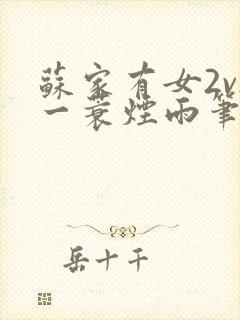 蘇家有女2v
一蓑煙雨筆
岳十千